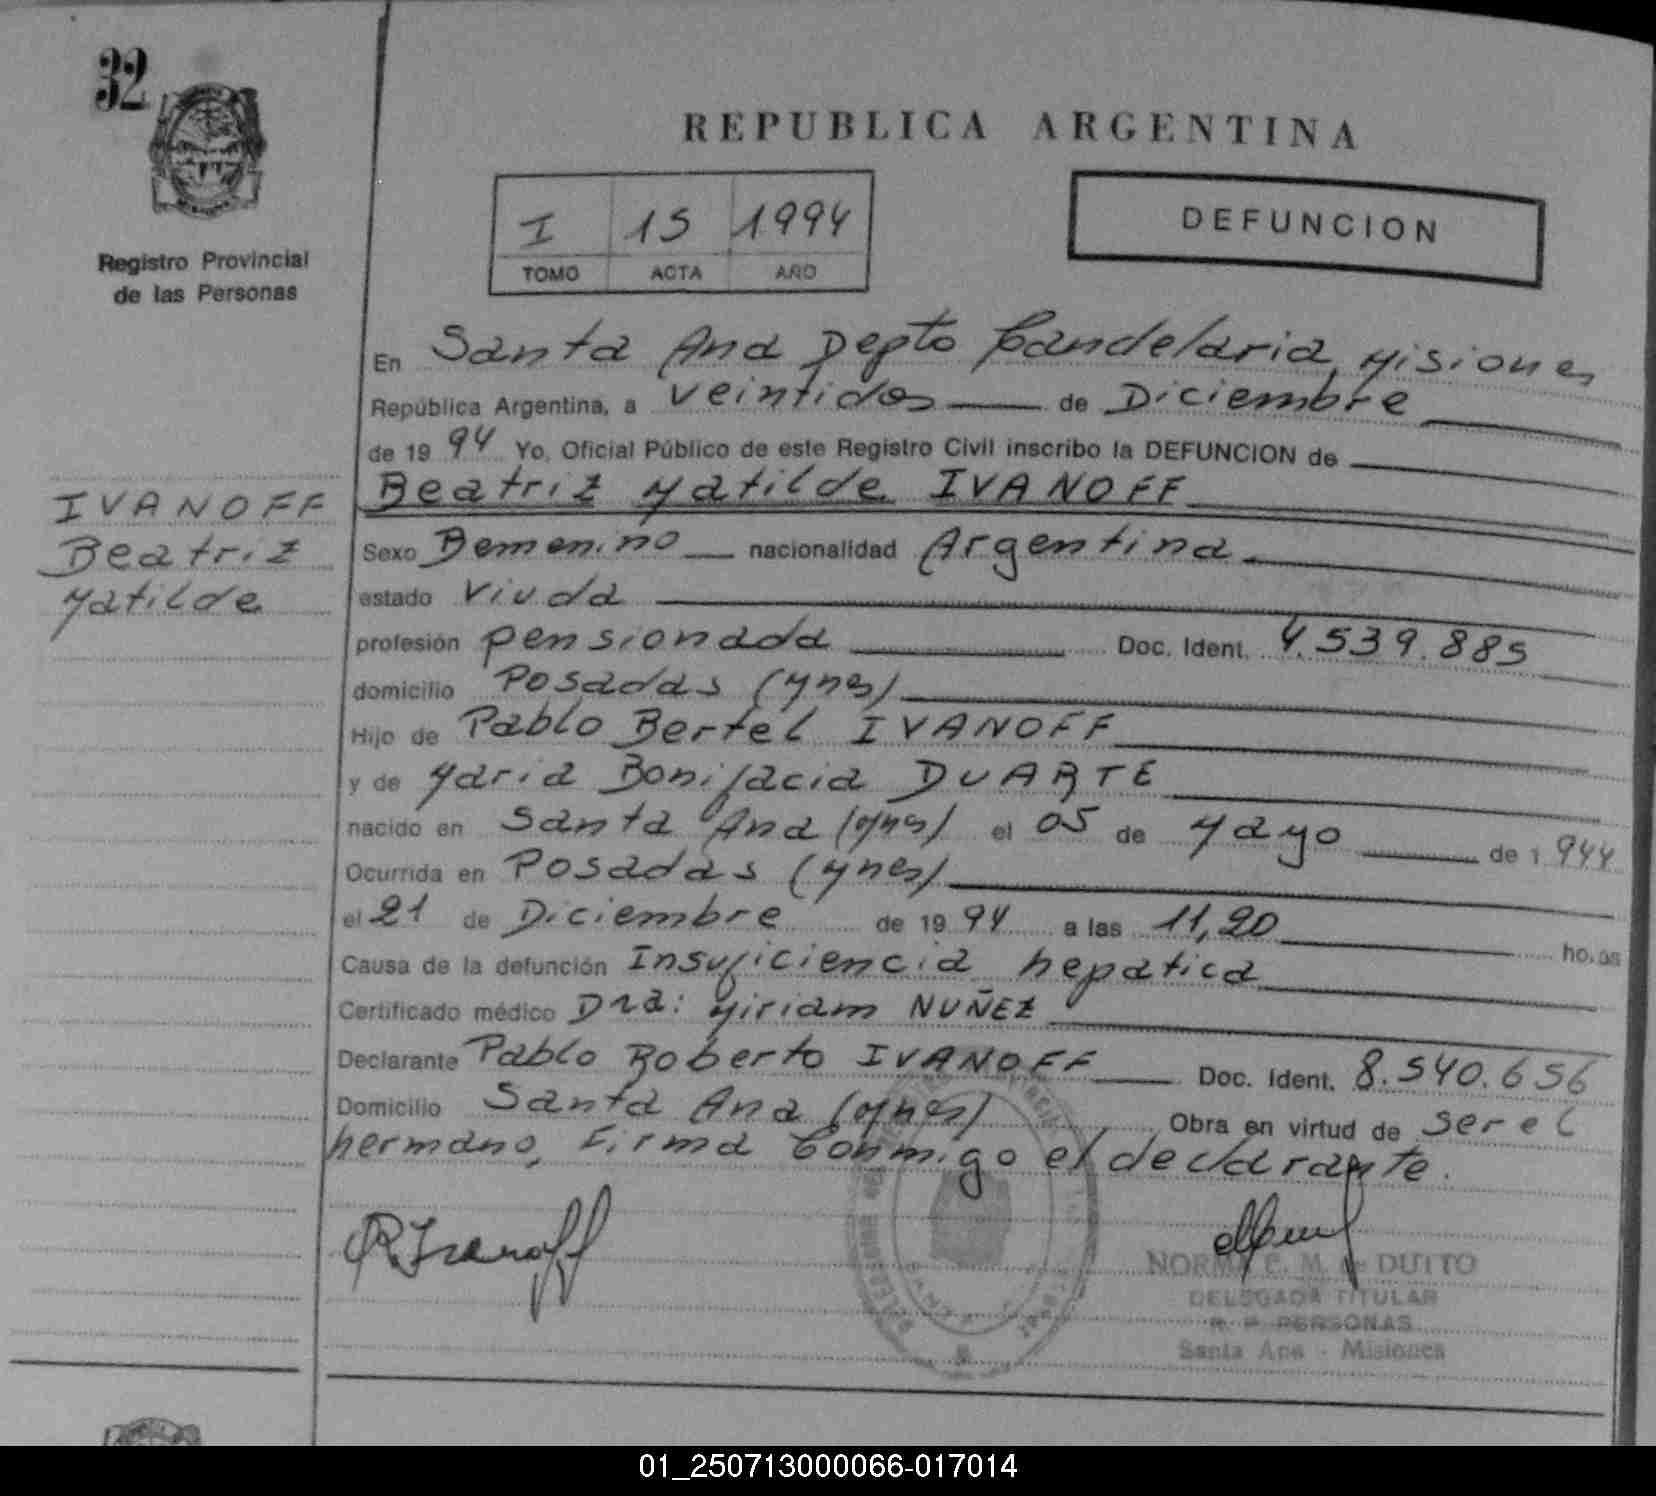 32
Registro Provincial
de las Personas
IVANOFF
Beatriz
Matilde
REPUBLICA ARGENTINA
I 15 1994
TOMO ACTA AÑO
DEFUNCION
En Santa Ana Depto Candelaria, Misiones
República Argentina, a veintidos de Diciembre
de 1994 Yo, Oficial Público de este Registro Civil inscribo la DEFUNCION de
Beatriz Matilde IVANOFF
Sexo Femenino nacionalidad Argentina
estado Viuda
profesión pensionada Doc. Ident. 4.539.885
domicilio Posadas (Mnes)
Hijo de Pablo Bertel IVANOFF
y de Maria Bonifacia DUARTE
nacido en Santa Ana (Mnes) el 05 de Mayo de 1944
Ocurrida en Posadas (Mnes)
el 21 de Diciembre de 1994 a las 11,20 horas
Causa de la defunción Insuficiencia hepatica
Certificado médico Dra: Miriam NUÑEZ
Declarante Pablo Roberto IVANOFF Doc. Ident. 8.540.656
Domicilio Santa Ana (Mnes) Obra en virtud de ser el
hermano, Firma Conmigo el declarante.
R. Ivanoff
NORMA C. M. de DUTTO
DELEGADA TITULAR
R. P. PERSONAS
Santa Ana - Misiones
01_250713000066-017014